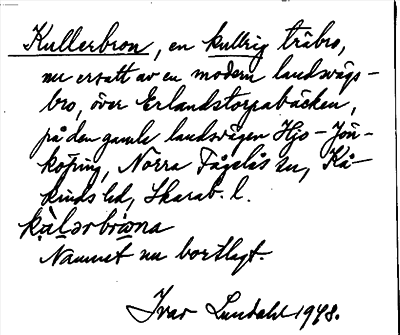 Kullerbron, en kullrig träbro,
nu ersatt av en modern landsvägs-
bro, över Erlandstorpabäcken,
på den gamla landsvägen Hjo-Jön-
köping, Norra Fågelås sn, Kå-
kinds hd, Skarab. l.
Namnet nu bortlagt.
Ivar Lundahl 1948.